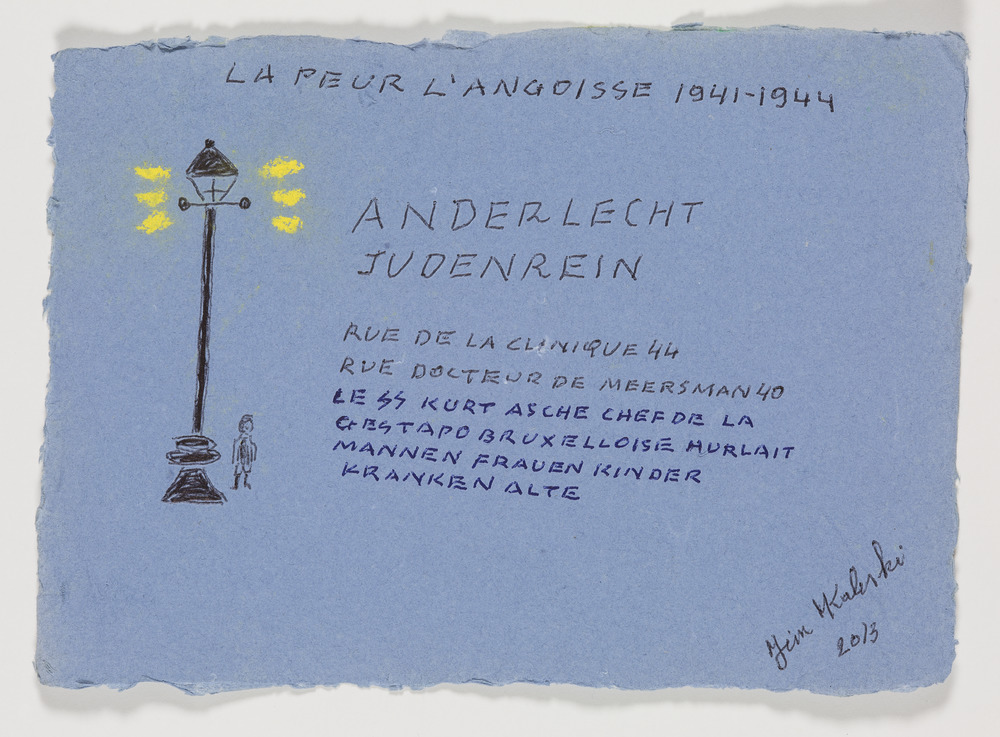 LA PEUR L'ANGOISSE 1941-1944
ANDERLECHT
JUDENREIN
RUE DE LA CLINIQUE 44
RUE DOCTEUR DE MEERSMAN 40
LE SS KURT ASCHE CHEF DE LA
GESTAPO BRUXELLOISE HURLAIT
MANNEN FRAUEN KINDER
KRANKEN ALTE
Kaliski
2013